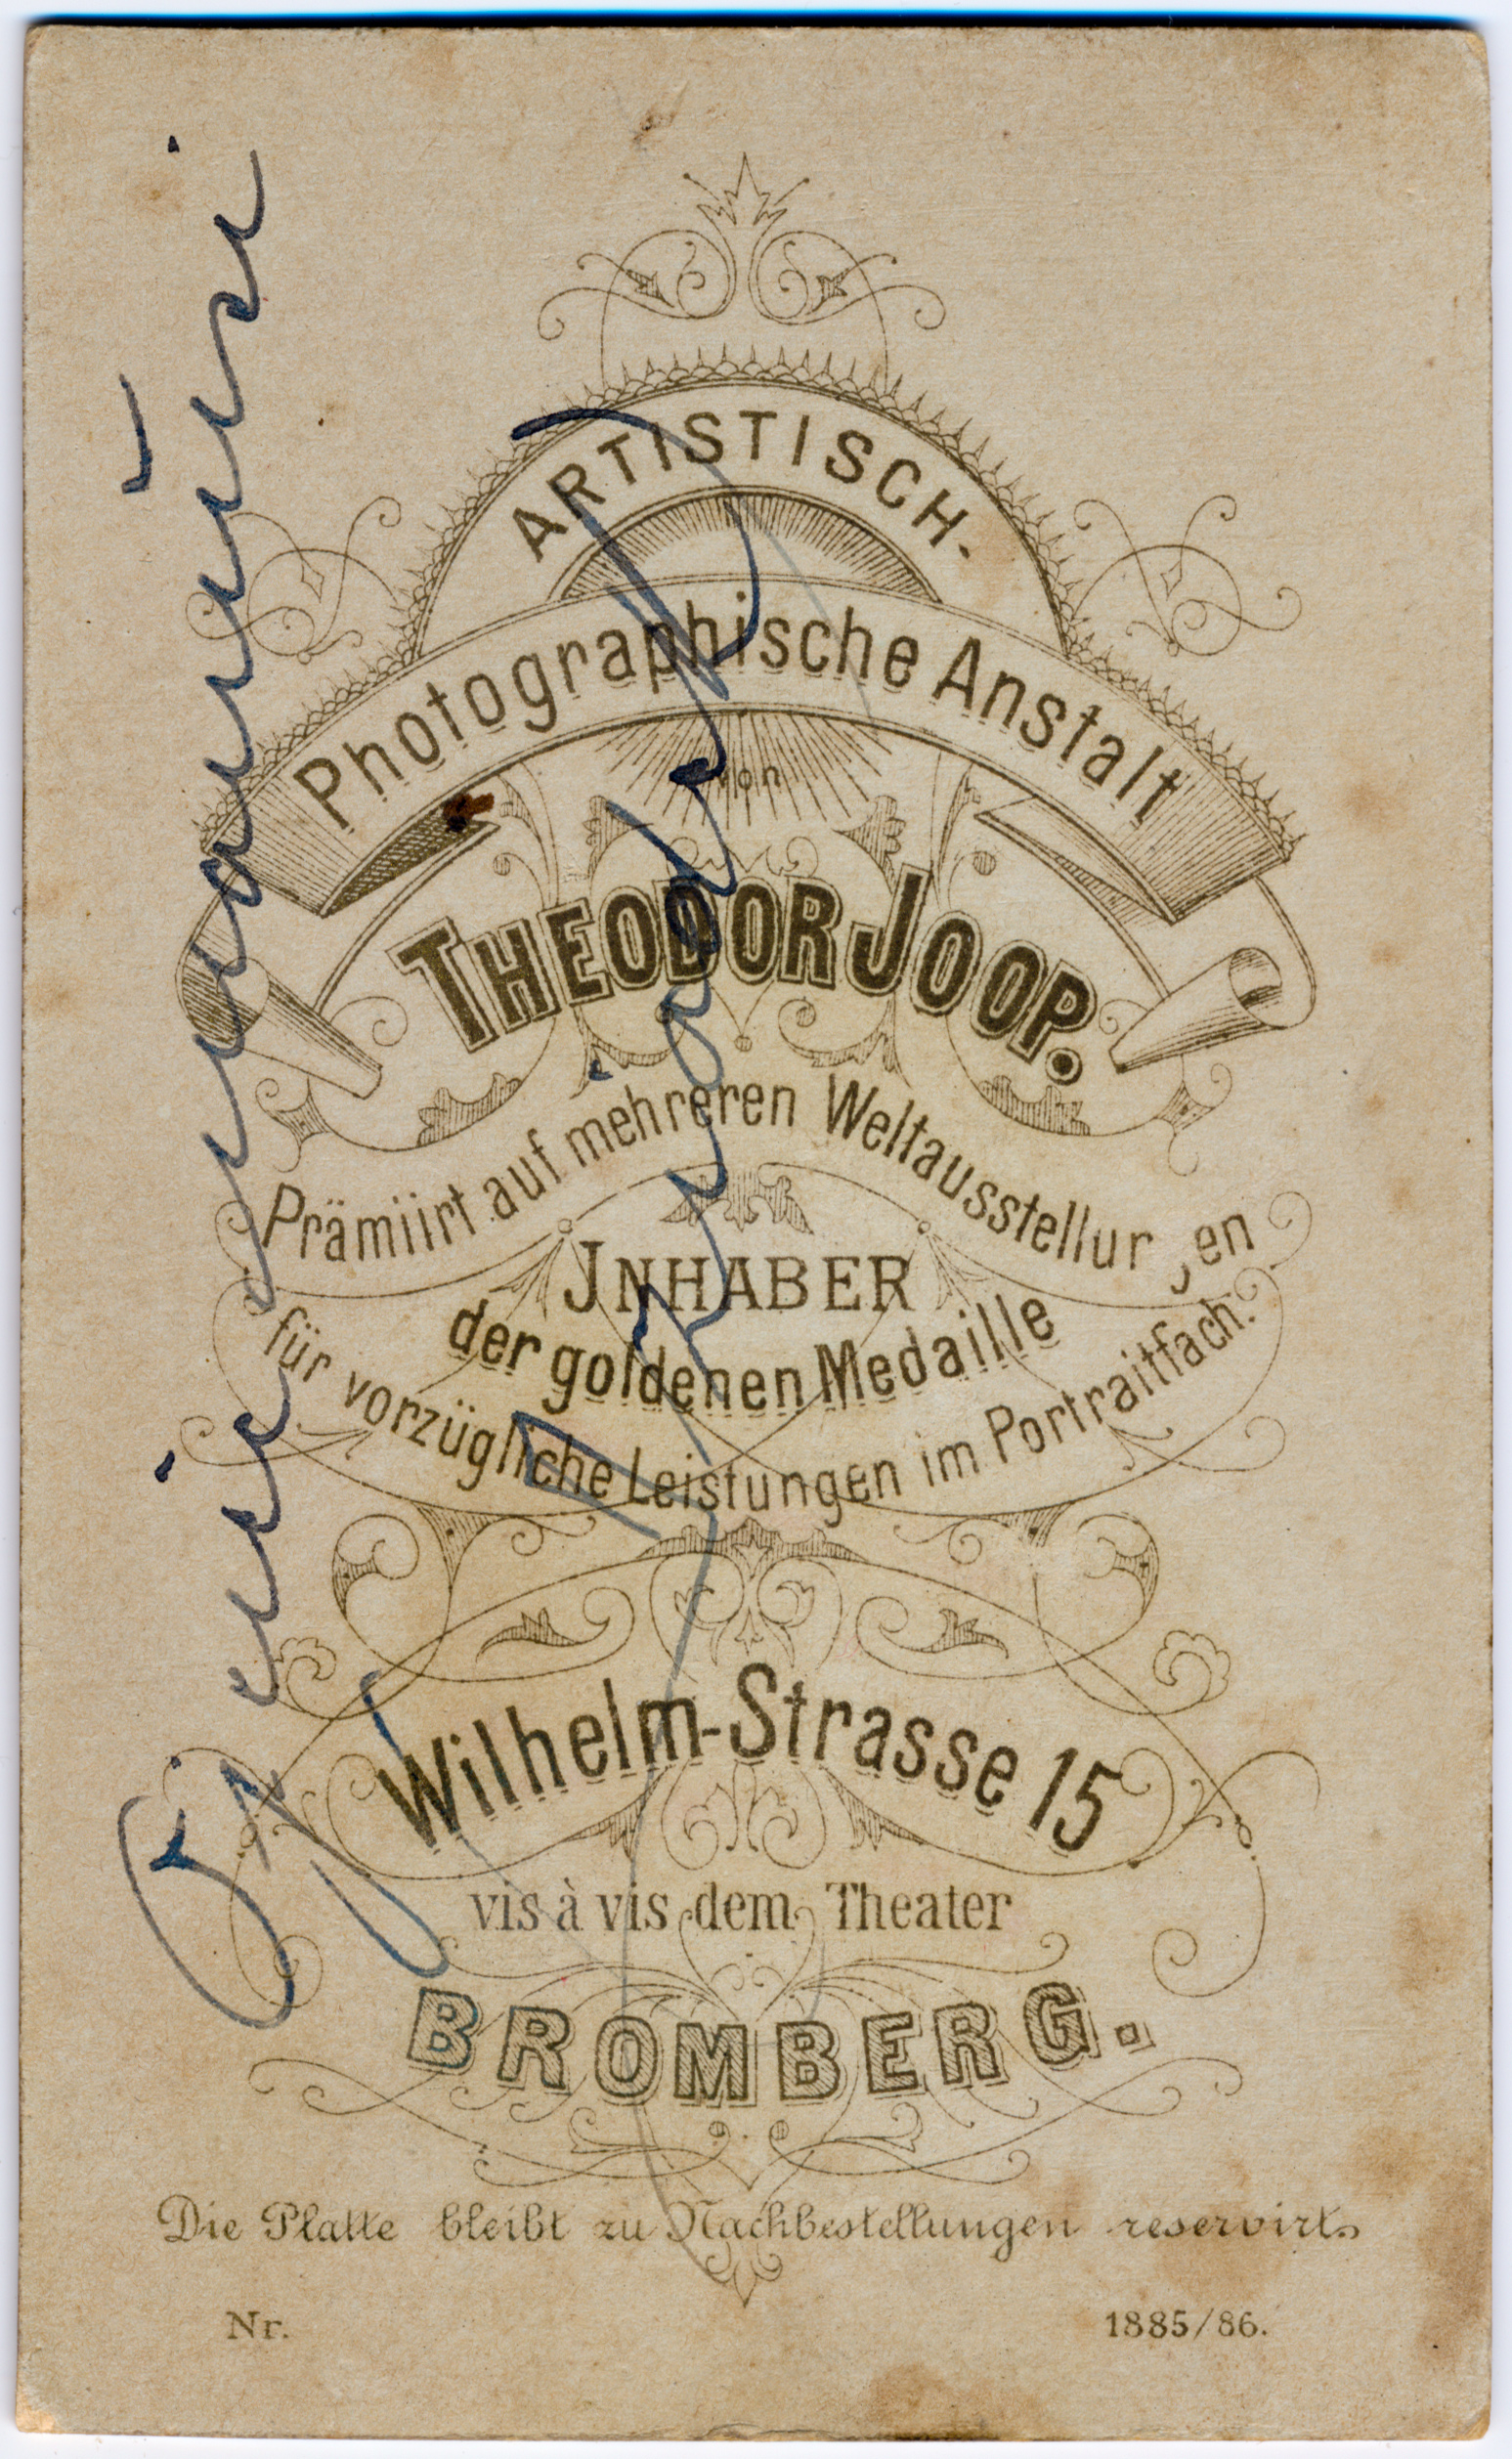 ARTISTISCH-
Photographische Anstalt
von
THEODOR JOOP.
Prämiirt auf mehreren Weltausstellungen
JNHABER
der goldenen Medaille
für vorzügliche Leistungen im Portraitfach.
Wilhelm-Strasse 15
vis à vis dem Theater
BROMBERG.
Die Platte bleibt zu Nachbestellungen reservirt.
Nr. 1885/86.